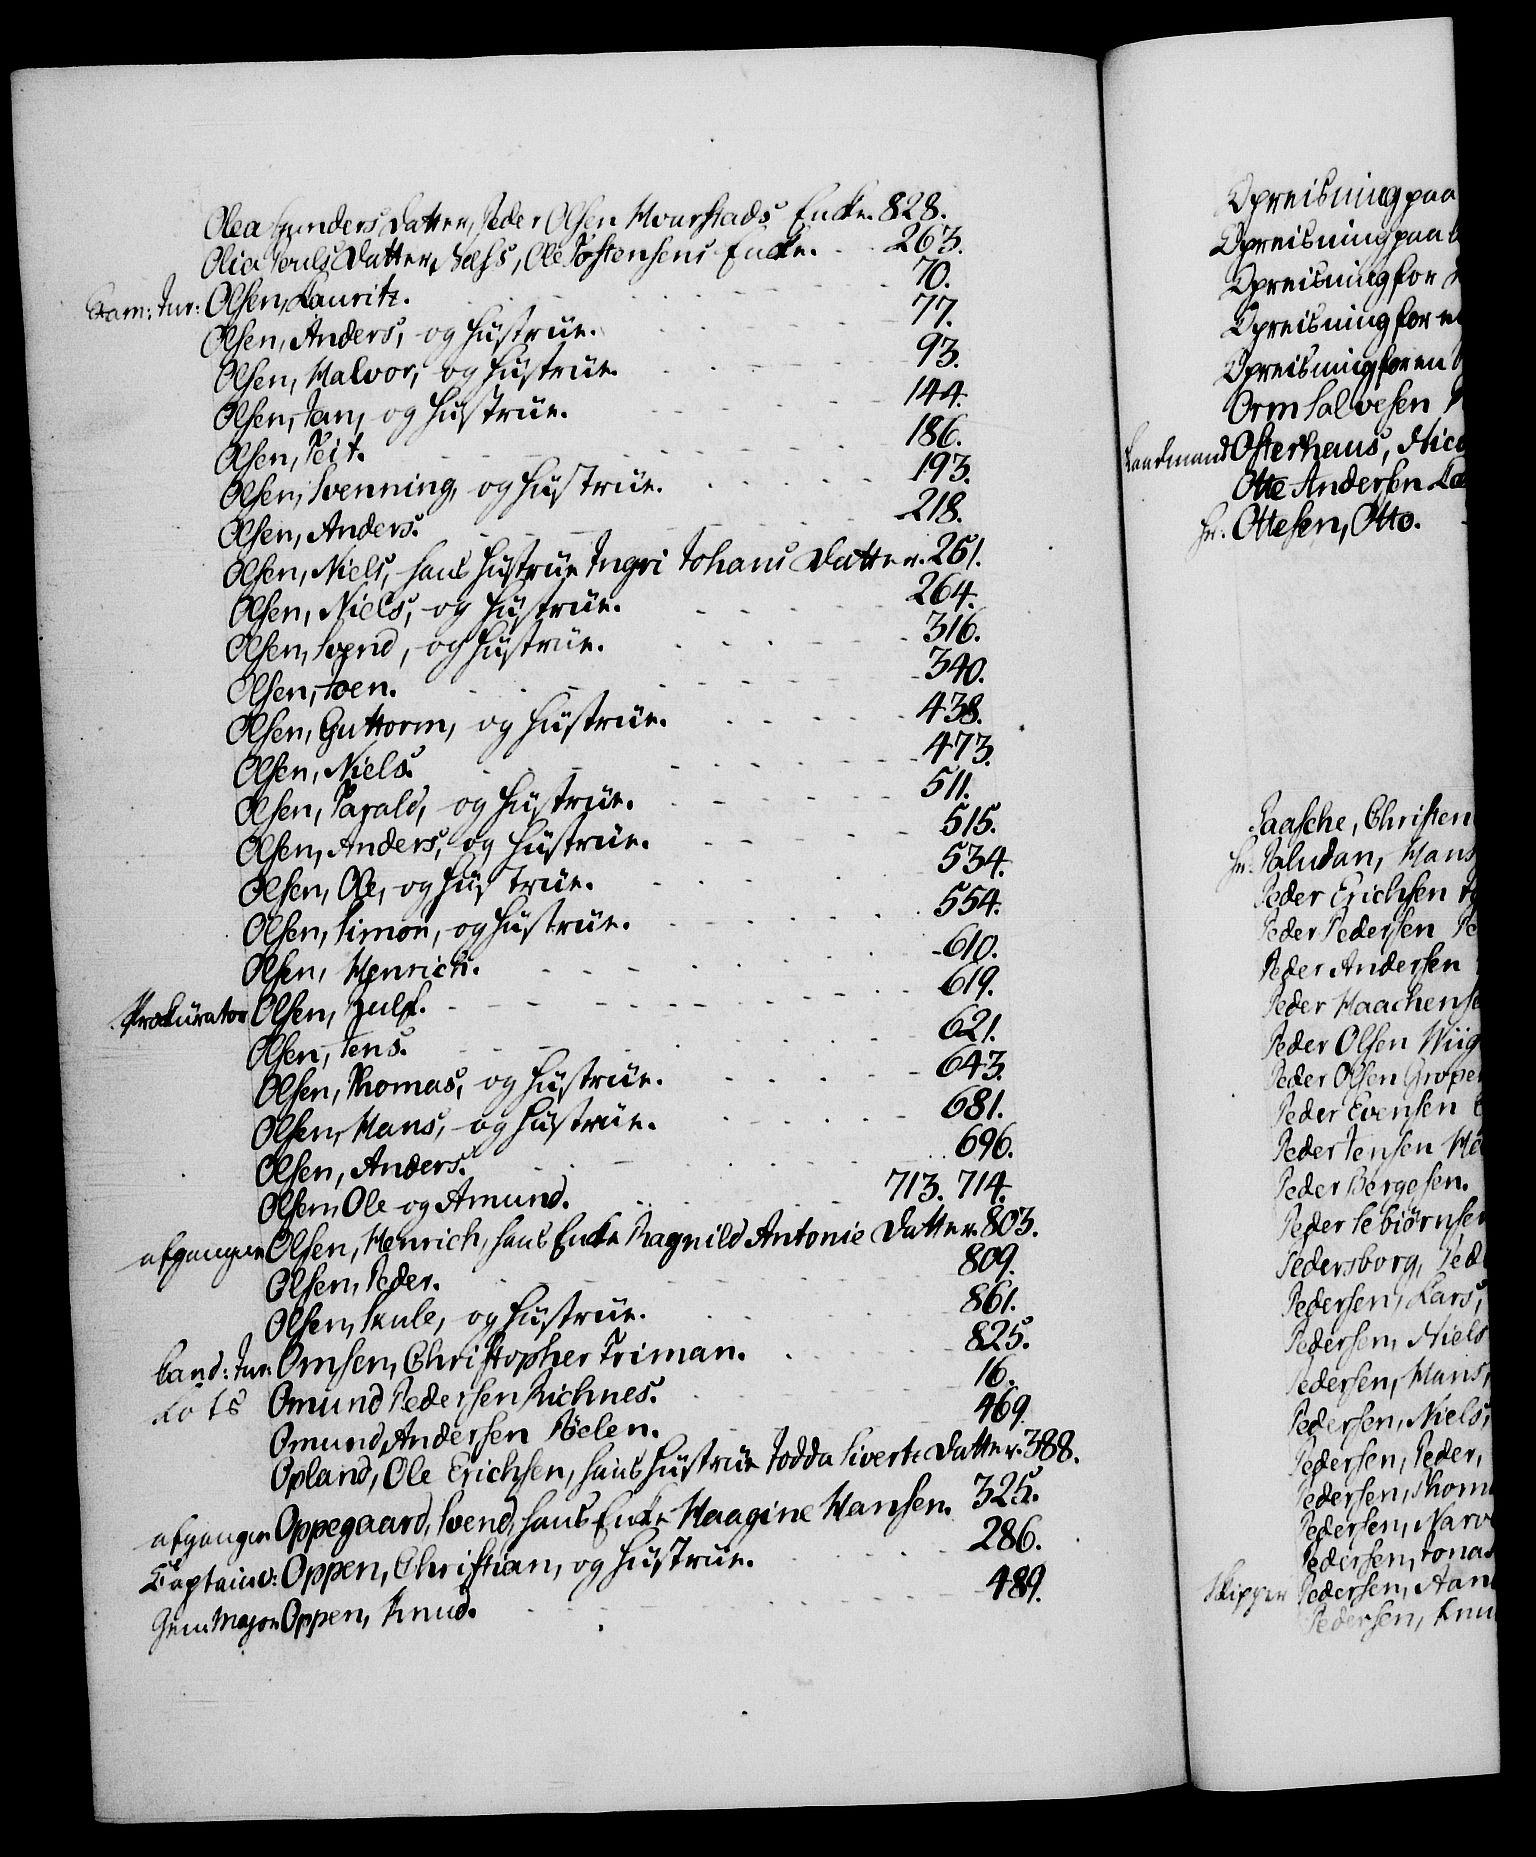 Olea Gunders Datter, Peder Olsen Hvarstads Encke. 828.
Olia Pouls Datter, Næss, Ole Tostensens Encke. 263.
Cam: Jur: Olsen, Lauritz. 70.
Olsen, Anders, og Hustrue. 77.
Olsen, Halvor, og Hustrue. 93.
Olsen, Jan, og Hustrue. 144.
Olsen, Teit. 186.
Olsen, Svenning, og Hustrue. 193.
Olsen, Anders. 218.
Olsen, Niels, hans Hustrue Ingri Johans Datter. 261.
Olsen, Niels, og Hustrue. 264.
Olsen, Svend, og Hustrue. 316.
Olsen, Joen. 340.
Olsen, Guttorm, og Hustrue. 438.
Olsen, Niels. 473.
Olsen, Tarald, og Hustrue. 511.
Olsen, Anders, og Hustrue. 515.
Olsen, Ole, og Hustrue. 534.
Olsen, Simon, og Hustrue. 554.
Olsen, Henrich. 610.
Prokurator Olsen, 619.
Olsen, Jens. 621.
Olsen, Thomas, og Hustrue. 643.
Olsen, Hans, og Hustrue. 681.
Olsen, Anders. 696.
Olsen, Ole og Amund. 713. 714.
afgangne Olsen, Henrich, hans Encke Ragnild Antonie Datter. 803.
Olsen, Peder. 809.
Olsen, Skule, og Hustrue. 861.
Cand: Jur: Omsen, Christopher Friman. 825.
Lots Omund Pedersen Kichnes. 16.
Omund Andersen Pølen. 469.
Opland, Ole Erichsen, hans Hustrue Jodda Siverts Datter. 388.
afgangne Oppegaard, Svend, hans Encke Haagine Hansen. 325.
Captain v: Oppen, Christian, og Hustrue. 286.
Gen: Major Oppen, Knud. 489.
Opreisning paa
Opreisning paa
Opreisning for
Opreisning for
Opreisning for en
Orm Salvesen
Kaadmand Osterhaus, Nico
Otte Andersen
Hr. Ottesen, Otto.
Paasche, Christen
Hr. Paludan, Hans
Peder Erichsen
Peder Pedersen
Peder Andersen
Peder Haachens
Peder Olsen Wiig
Peder Olsen Grope
Peder Evensen
Peder Jensen
Peder Børgesen.
Peder Sebiørnsen
Pedersborg, Ped
Pedersen, Lars,
Pedersen, Niels
Pedersen, Hans,
Pedersen, Niels,
Pedersen, Peder,
Pedersen, Thom
Pedersen, Narv
Pedersen, Jonas
Skipper Pedersen, Aan
Pedersen, Knu